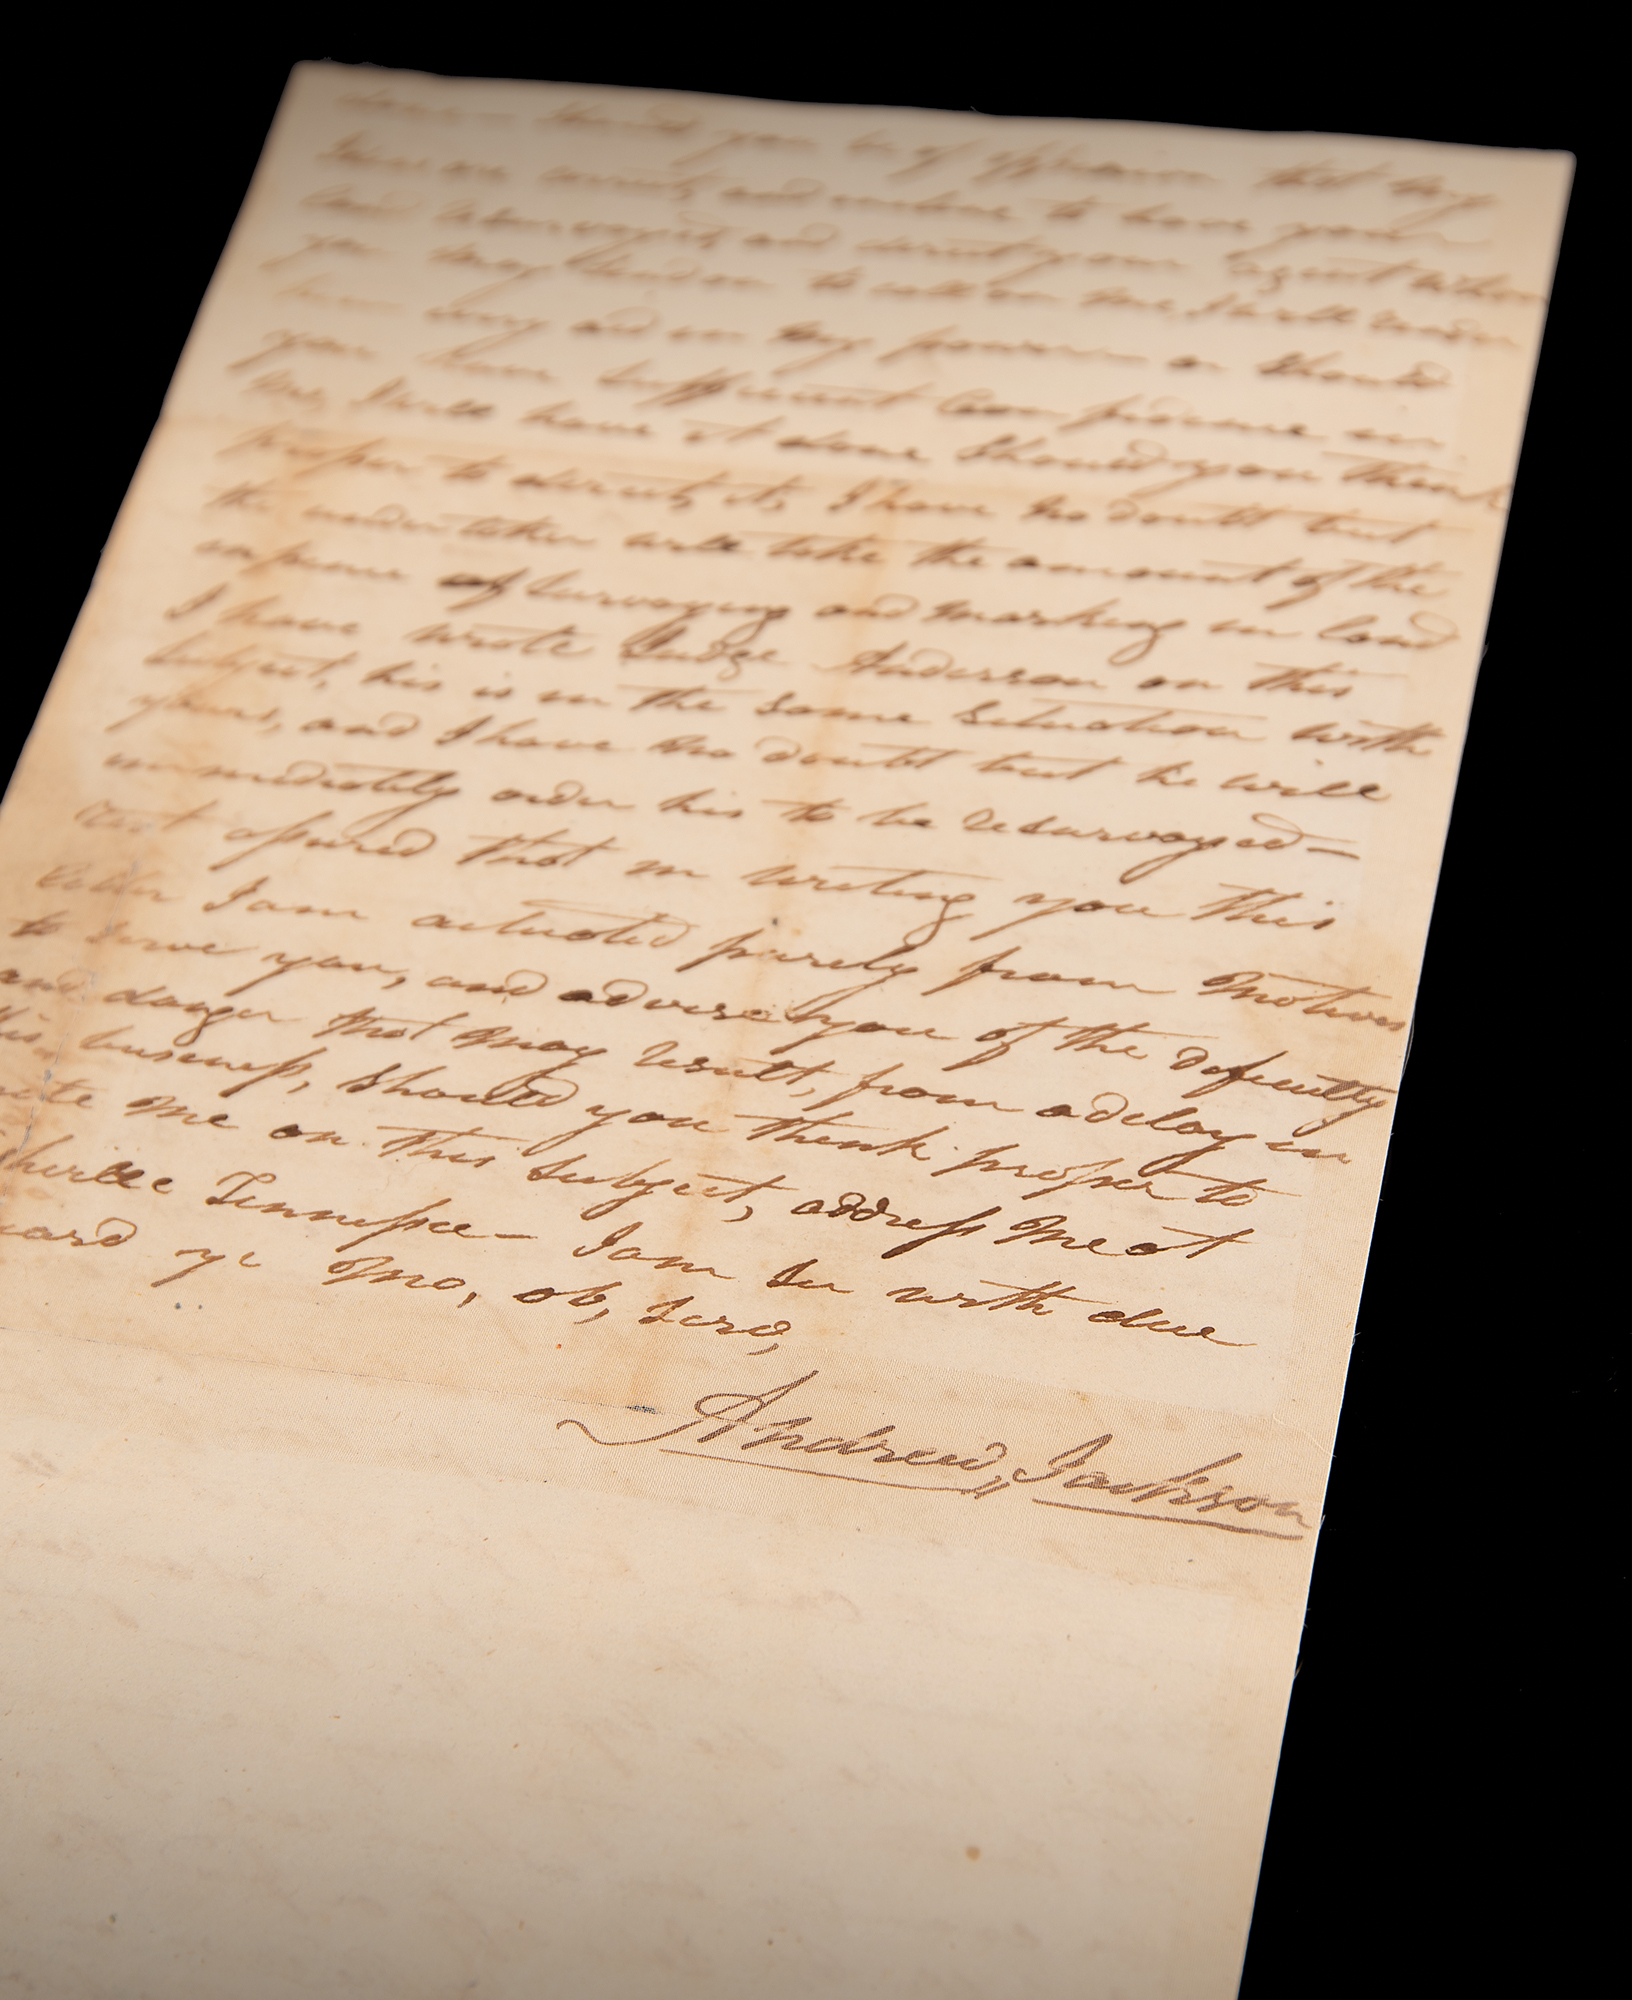 done — should you be of oppinion that my
Ideas are correct, and incline to have your
land resurveyed, and direct your agent whom
you may send on to call on me, I will render
him every aid in my power — or should
you have sufficient Confidence in
me, I will have it done should you think
proper to direct it, I have no doubt but
the undertaker will take the amount of the
expence of surveying and marking in land
I have wrote Judge Anderson on this
subject, his is in the same situation with
yours, and I have no doubt but he will
immediately order his to be resurveyed —
rest assured that in writing you this
letter I am actuated purely from motives
to serve you, and advise you of the dificulty
and danger that may result, from a delay in
this business, should you think proper to
write me on this subject, address me at
shville Tennessee — I am Sir with due
gard yr mo, ob, serv,
Andrew Jackson